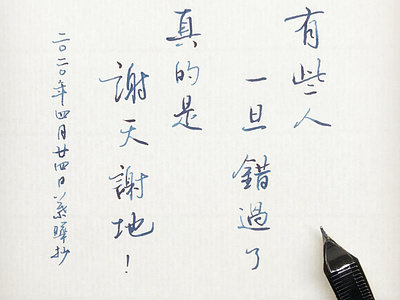 有些人
一旦錯過了
真的是
謝天謝地！
二〇二〇年四月廿四日 抄